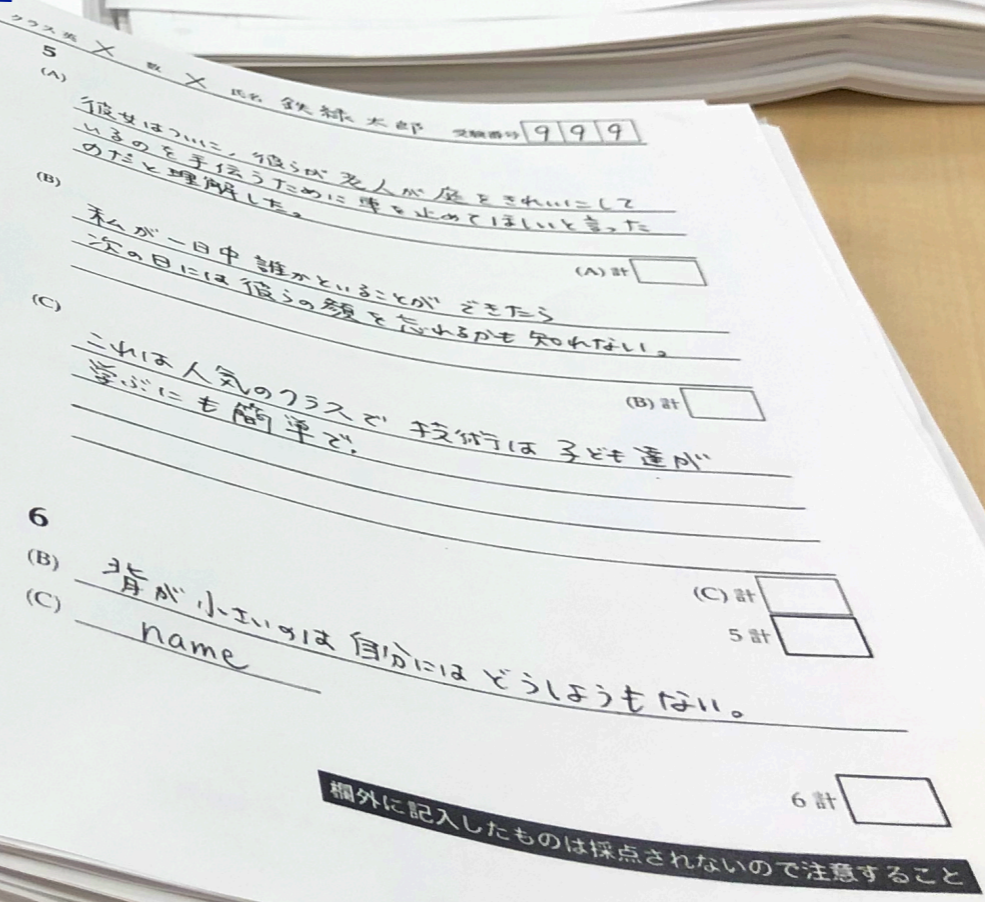 クラス 英 × 数 × 氏名 鉄緑太郎 受験番号 999
5
(A)
彼女はついに、彼らが老人が庭をきれいにして
いるのを手伝うために車を止めてほしいと言った
のだと理解した。
(A) 計
(B)
私が一日中誰かといることができたら
次の日には彼らの顔を忘れるかも知れない。
(B) 計
(C)
これは人気のクラスで 技術は子ども達が
学ぶにも簡単で、
(C) 計
5 計
6
(B) 背が小さいのは自分にはどうしようもない。
(C) name
6 計
欄外に記入したものは採点されないので注意すること